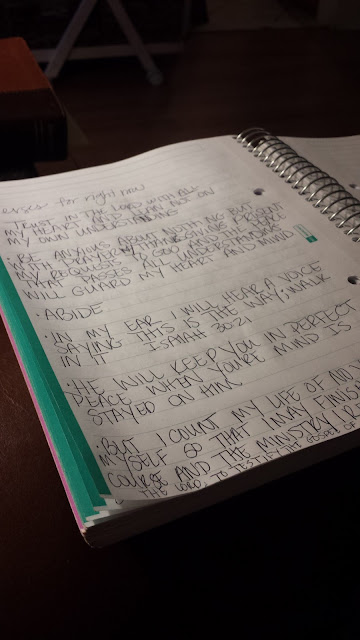 erses for right now
TRUST IN THE LORD WITH ALL
MY HEART AND LEAN NOT ON
MY OWN UNDERSTANDING
·BE ANXIOUS ABOUT NOTHING BUT
WITH PRAYER & THANKSGIVING PRESENT
MY REQUESTS TO GOD AND THE PEACE
THAT PASSES ALL UNDERSTANDING
WILL GUARD MY HEART AND MIND
·ABIDE
·IN MY EAR I WILL HEAR A VOICE
SAYING "THIS IS THE WAY; WALK
IN IT" ISAIAH 30:21
·HE WILL KEEP YOU IN PERFECT
PEACE WHEN YOURE MIND IS
STAYED ON HIM
·BUT I COUNT MY LIFE OF NO
MYSELF SO THAT I MAY FINIS
COURSE AND THE MINISTRY I
THE LORD, TO TESTIFY THE GOSPEL OF